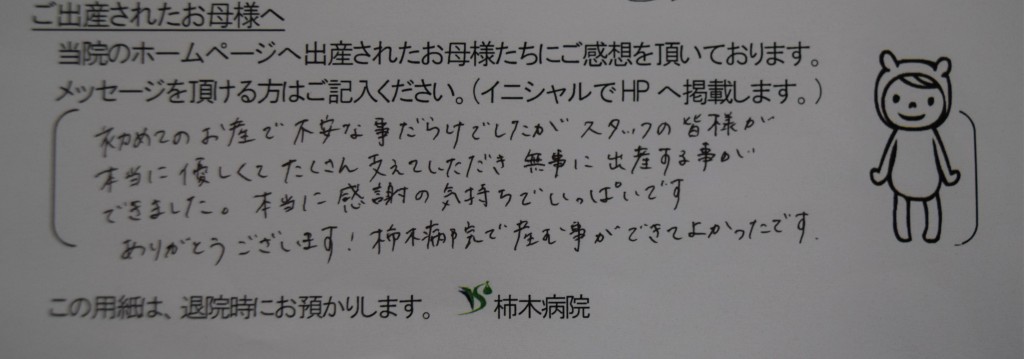 ご出産されたお母様へ
当院のホームページへ出産されたお母様たちにご感想を頂いております。
メッセージを頂ける方はご記入ください。(イニシャルでHPへ掲載します。)
初めてのお産で不安な事だらけでしたがスタッフの皆様が
本当に優しくてたくさん支えていただき無事に出産する事が
できました。本当に感謝の気持ちでいっぱいです
ありがとうございます！柿木病院で産む事ができてよかったです.
この用紙は、退院時にお預かりします。 柿木病院